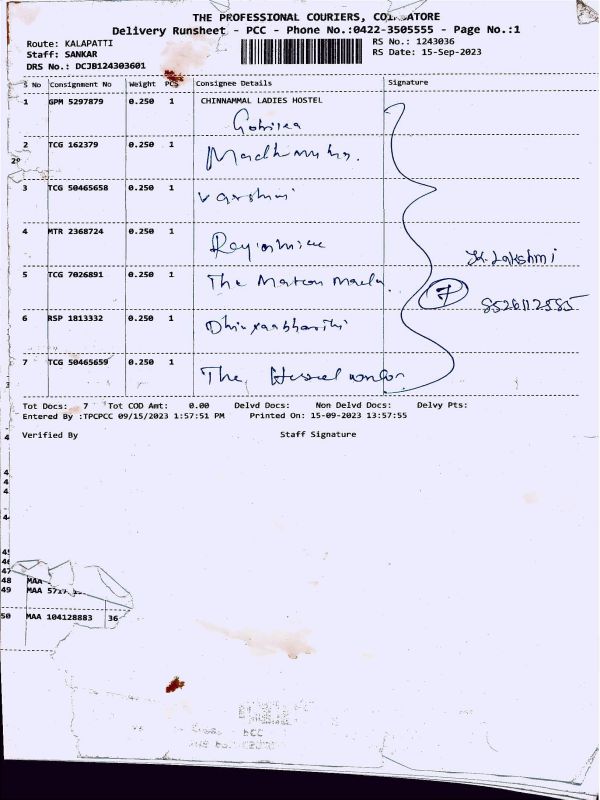 THE PROFESSIONAL COURIERS, COIMBATORE
Delivery Runsheet - PCC - Phone No.:0422-3505555 - Page No.:1
Route: KALAPATTI RS No.: 1243036
Staff: SANKAR RS Date: 15-Sep-2023
DRS No.: DCJB124303601
S No Consignment No Weight PCS Consignee Details Signature
1 GPM 5297879 0.250 1 CHINNAMMAL LADIES HOSTEL
2 TCG 162379 0.250 1
29
3 TCG 50465658 0.250 1 varshini
4 MTR 2368724 0.250 1
K. Lakshmi
5 TCG 7026891 0.250 1 The
7
8526112585
6 RSP 1813332 0.250 1
7 TCG 50465659 0.250 1 The
Tot Docs: 7 Tot COD Amt: 0.00 Delvd Docs: Non Delvd Docs: Delvy Pts:
Entered By :TPCPCC 09/15/2023 1:57:51 PM Printed On: 15-09-2023 13:57:55
Verified By Staff Signature
48 MAA
49 MAA
50 MAA 104128883 36